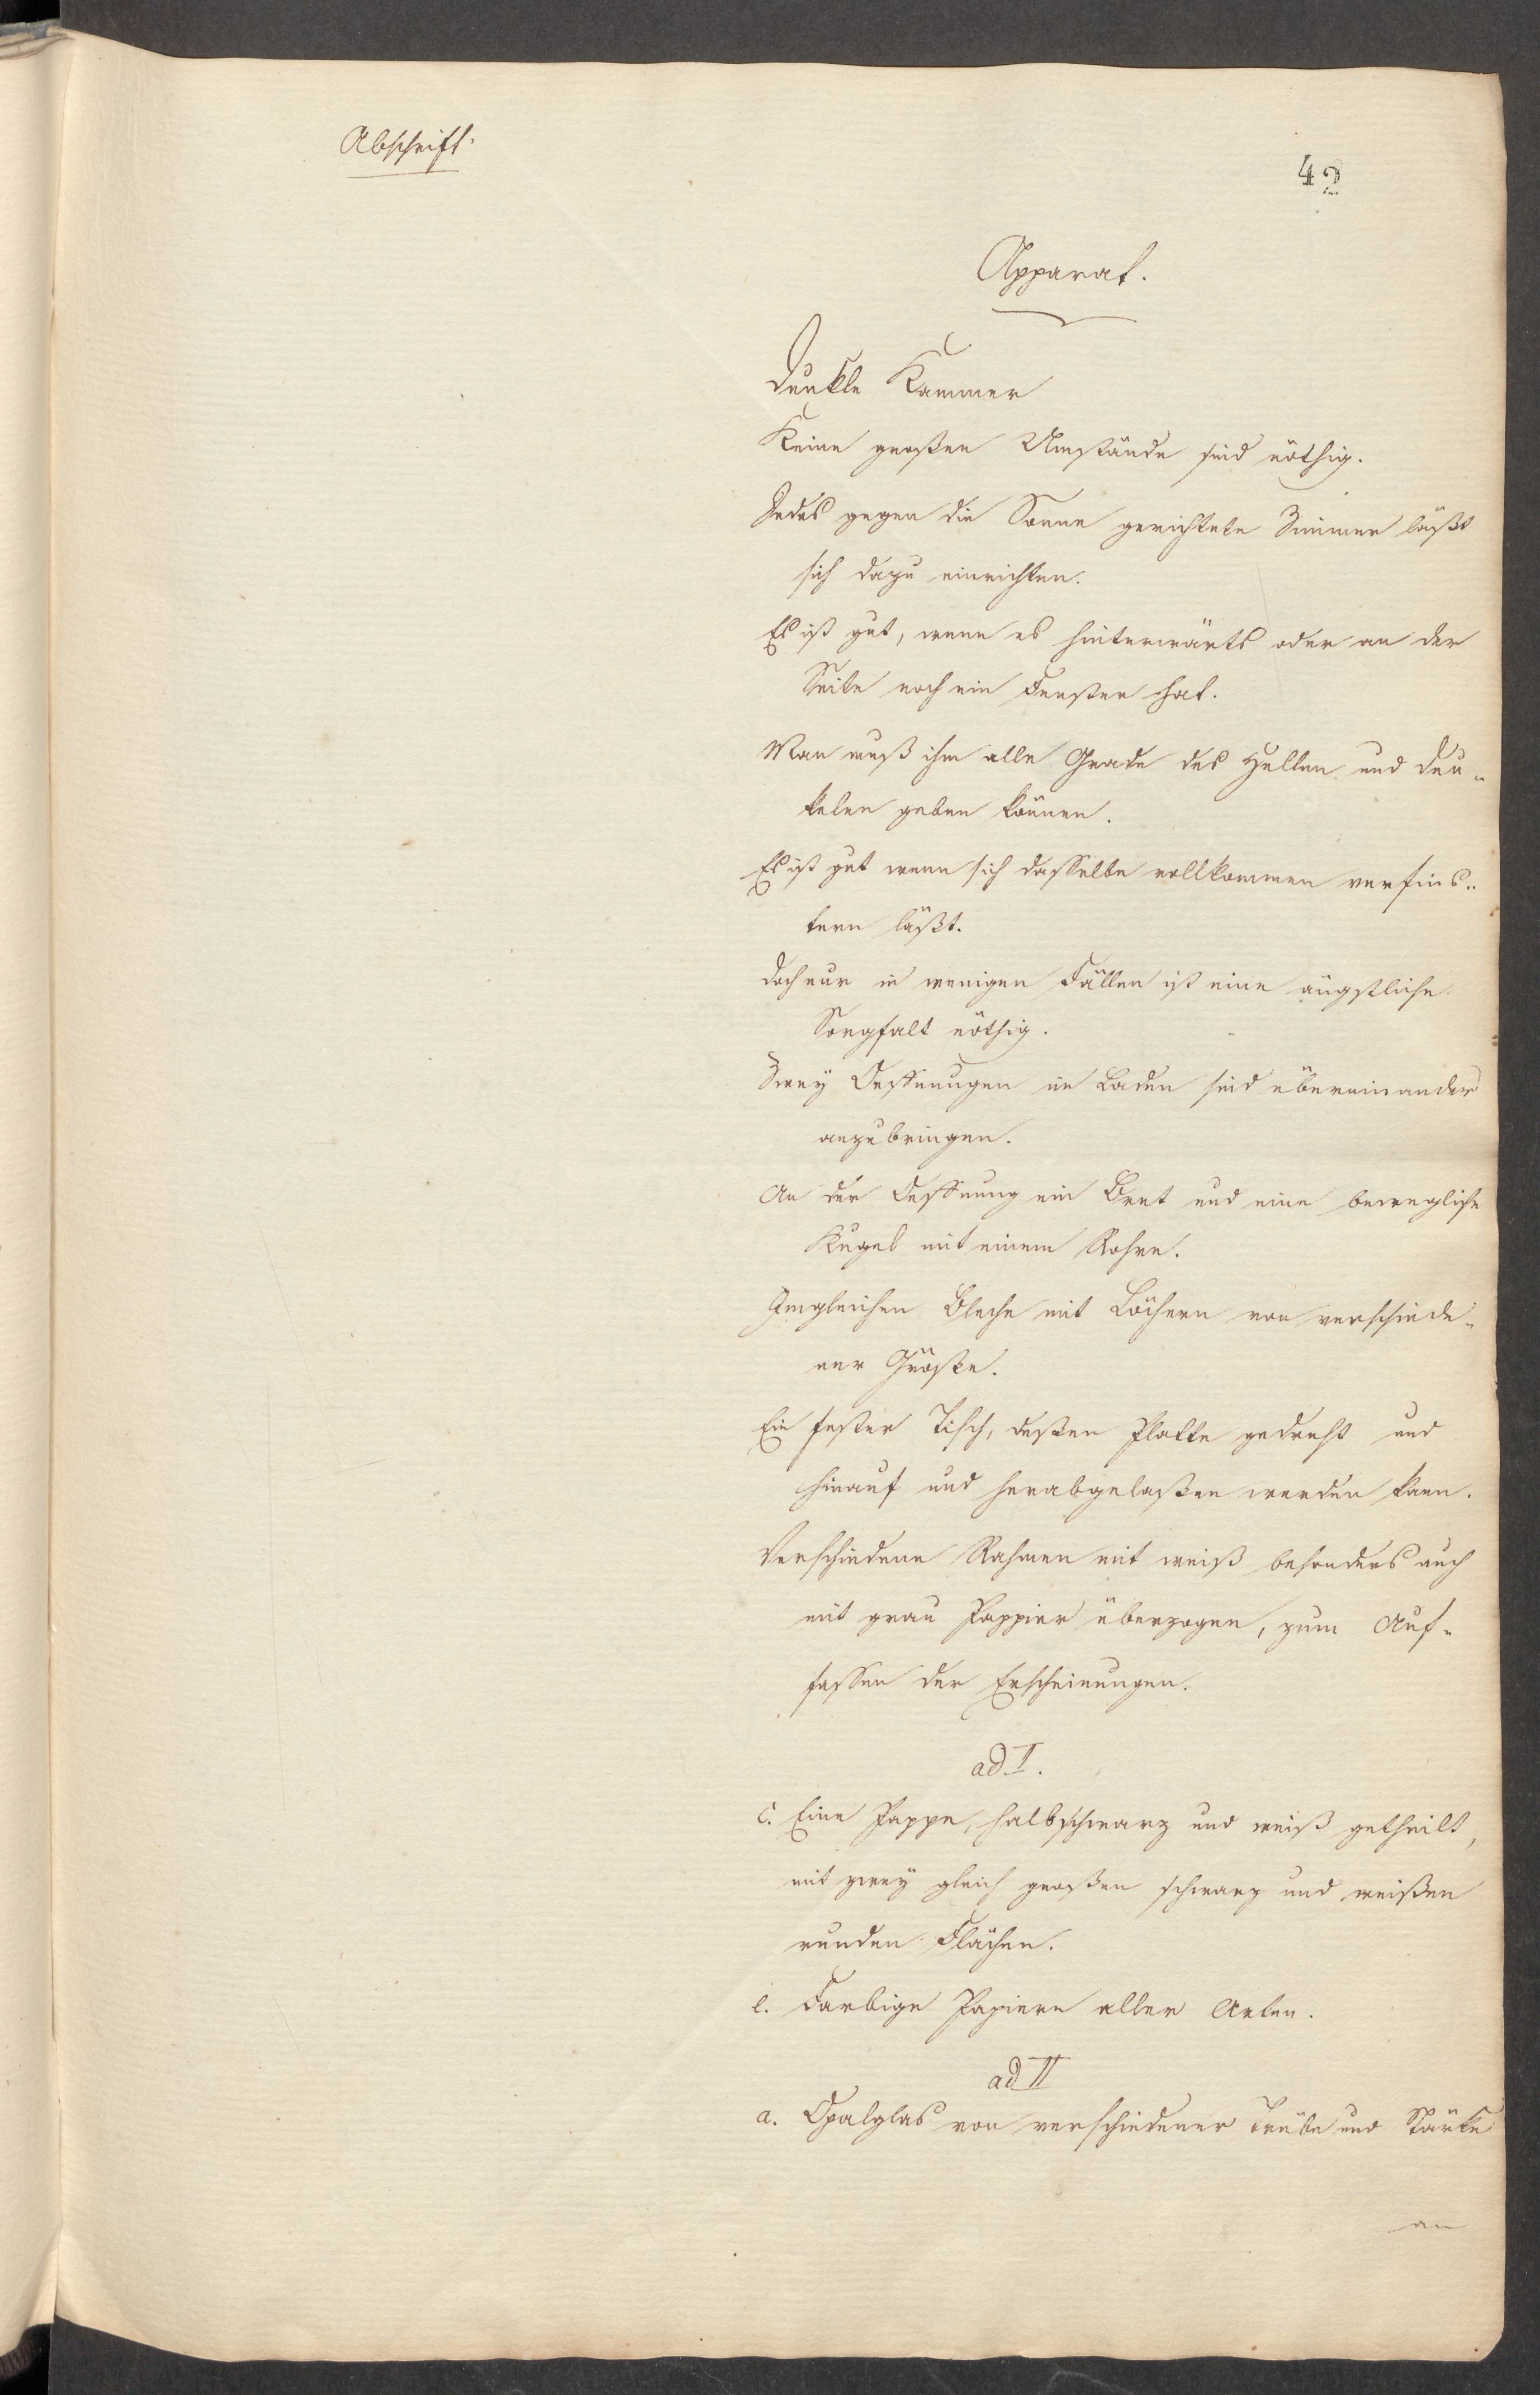 Abschrift.
42
Apparat.
Dunkle Kammer
Keine großen Umstände sind nöthig.
Jedes gegen die Sonne gerichtete Zimmer läßt
sich dazu einrichten.
Es ist gut, wenn es hinterwärts oder an der
Seite noch ein Fenster hat.
Man muß ihm alle Grade des Hellen und Dun-
kelen geben können.
Es ist gut wenn sich dasselbe vollkommen verfins-
tern läßt.
Doch nur in wenigen Fällen ist eine ängstliche
Sorgfalt nöthig.
Zwey Oeffnungen im Laden sind übereinander
anzubringen.
An der Oeffnung ein Bret und eine bewegliche
Kugel mit einem Rohre.
Imgleichen Bleche mit Löchern von verschiede-
ner Größe.
Ein fester Tisch, deßen Platte gedreht und
hinauf und herabgelaßen werden kann.
Verschiedene Rahmen mit weiß besonders auch
mit grau Pappier überzogen, zum Auf-
fassen der Erscheinungen.
ad I.
c. Eine Pappe, halbschwarz und weiß getheilt,
mit zwey gleich großen schwarz und weißen
runden Flächen.
e. Farbige Papiere aller Arten.
ad II
a. Opalglas von verschiedener Trübe und Stärke
an